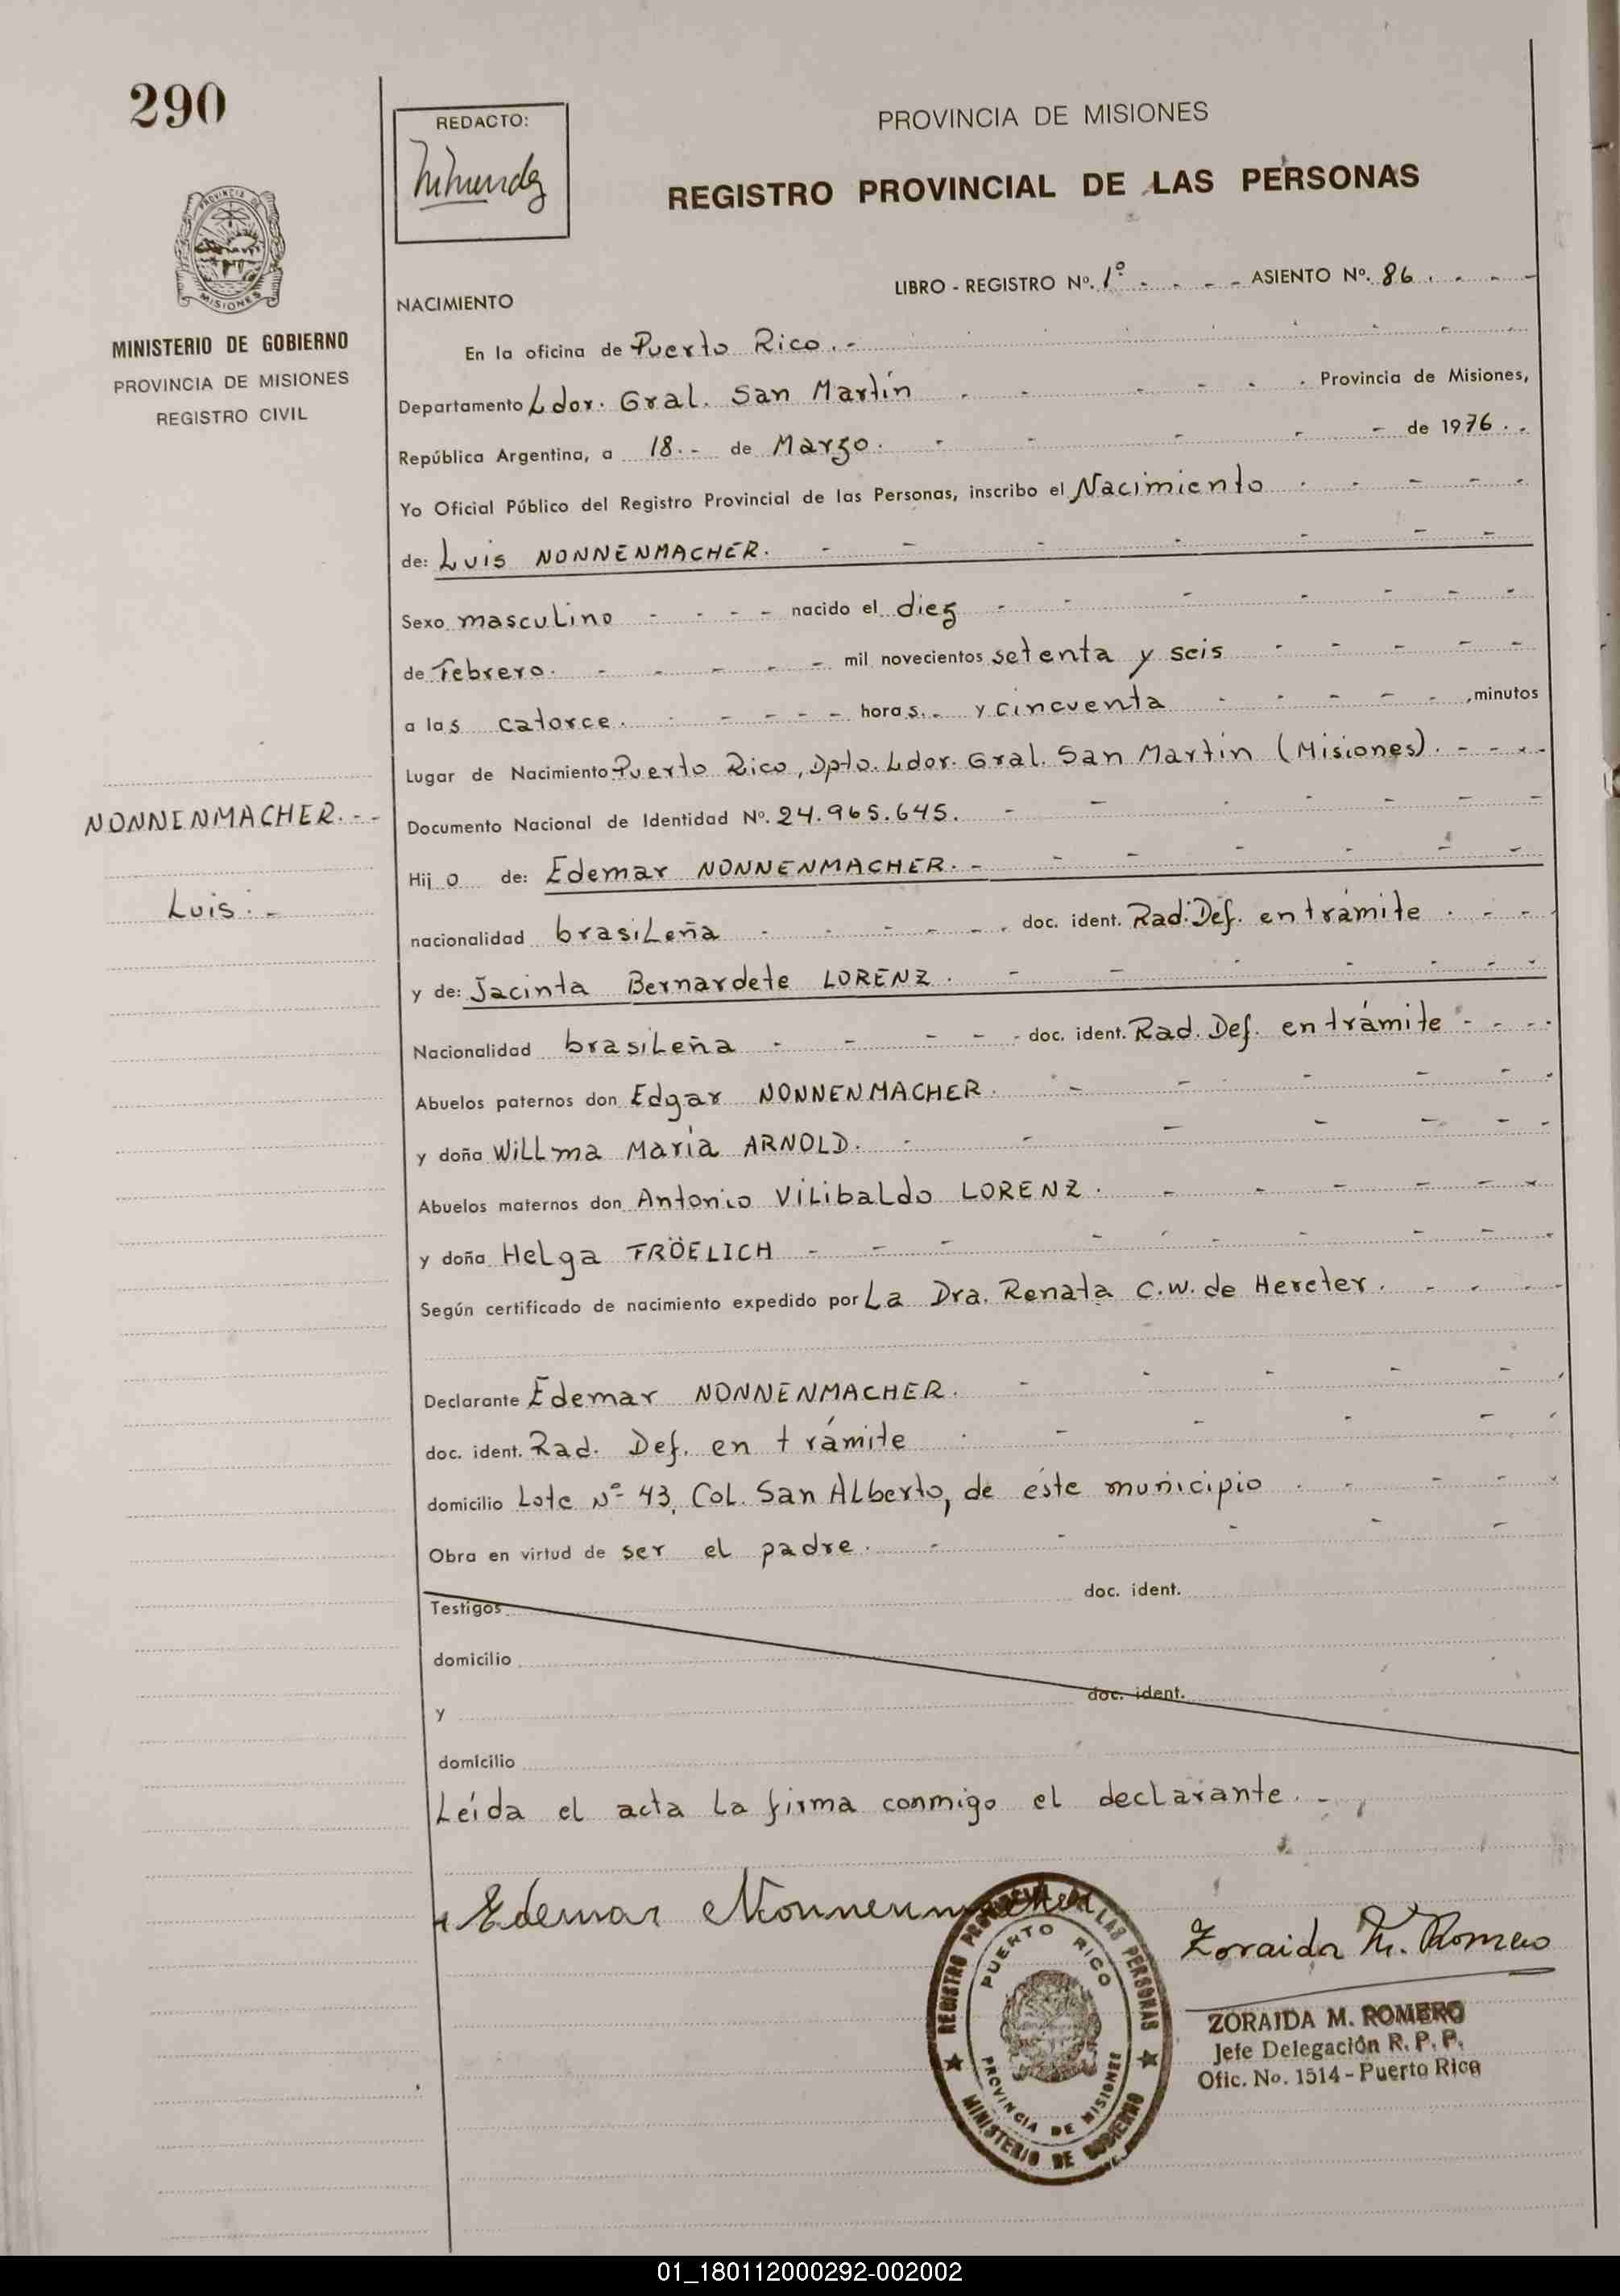 290
REDACTO:
PROVINCIA DE MISIONES
REGISTRO PROVINCIAL DE LAS PERSONAS
PROVINCIA DE
MISIONES
MINISTERIO DE GOBIERNO
PROVINCIA DE MISIONES
REGISTRO CIVIL
LIBRO - REGISTRO Nº. 1º - - - - ASIENTO Nº. 86 . - - -
NACIMIENTO
En la oficina de Puerto Rico . -
Departamento Ldor. Gral. San Martín - - - - - . Provincia de Misiones,
República Argentina, a 18. - de Marzo. - - - - - de 1976 . .
Yo Oficial Público del Registro Provincial de las Personas, inscribo el Nacimiento - - - - -
de: Luis NONNENMACHER. - - - - - - -
Sexo masculino - - - - nacido el diez - - - - - - -
de Febrero. - - - - - mil novecientos setenta y seis - - - - -
a las catorce. - - - - - horas. - y cincuenta - - - - - , minutos
Lugar de Nacimiento Puerto Rico, Dpto. Ldor. Gral. San Martín (Misiones). - - - -
NONNENMACHER. - -
Documento Nacional de Identidad Nº. 24.965.645. - - - - - - -
Hijo de: Edemar NONNENMACHER. - - - - - - -
Luis. -
nacionalidad brasileña - - - - - - doc. ident. Rad. Def. en trámite - - -
y de: Jacinta Bernardete LORENZ. - - - - - - -
Nacionalidad brasileña - - - - - doc. ident. Rad. Def. en trámite - - - -
Abuelos paternos don Edgar NONNENMACHER. - - - - - -
y doña Willma María ARNOLD. - - - - - - -
Abuelos maternos don Antonio Vilibaldo LORENZ. - - - - - -
y doña Helga FRÖELICH - - - - - - - - -
Según certificado de nacimiento expedido por La Dra. Renata C.W. de Hereter. - - - -
Declarante Edemar NONNENMACHER. - - - - -
doc. ident. Rad. Def. en trámite - - - - -
domicilio Lote Nº 43, Col. San Alberto, de éste municipio - - - - -
Obra en virtud de ser el padre. - - - - -
Testigos doc. ident.
domicilio
y doc. ident.
domicilio
Leída el acta la firma conmigo el declarante. -
Edemar Nonnenmacher
REGISTRO PROVINCIAL DE LAS PERSONAS
PUERTO RICO
PROVINCIA DE MISIONES
MINISTERIO DE GOBIERNO
Zoraida M. Romero
ZORAIDA M. ROMERO
Jefe Delegación R. P. P.
Ofic. No. 1514 - Puerto Rico
01_180112000292-002002